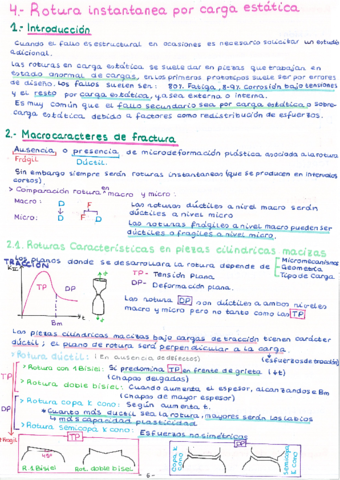 4.- Rotura instantanea por carga estática
1.- Introducción
Cuando el fallo es estructural en ocasiones es necesario solicitar un estudio
adicional.
Las roturas en carga estática se suele dar en piezas que trabajan en
estado anormal de cargas, en los primeros prototipos suele ser por errores
de diseño. Los fallos suelen ser: 80% Fatiga, 8-9% Corrosión bajo tensiones
y el resto por carga estática, ya sea externa o interna.
Es muy común que el fallo secundario sea por carga estática o sobre-
carga estática debido a factores como redistribución de esfuerzos.
2.- Macrocaracteres de fractura
Ausencia, o presencia, de microdeformación plástica asociada a la rotura
Frágil Dúctil.
Sin embargo siempre serán roturas instantaneas (que se producen en intervalos
cortos).
> Comparación rotura en macro y micro:
Macro: D F Las roturas dúctiles a nivel macro serán
dúctiles a nivel micro
Micro: D D F Las roturas frágiles a nivel macro pueden ser
dúctiles o fragiles a nivel micro.
2.1. Roturas Características en piezas cilíndricas macizas
Los planos donde se desarrollara la rotura depende de Micromecanismos
Geometria
Tipo de Carga
TRACCIÓN
TP- Tensión Plana.
DP- Deformación plana.
TP DP
Bm
Las roturas DP son dúctiles a ambos niveles
macro y micro pero no tanto como las TP
Las piezas cilíndricas macizas bajo cargas de tracción tienen carácter
dúctil; el plano de rotura será perpendicular a la carga.
(esfuerzos de tracción)
> Rotura dúctil: (En ausencia de defectos)
TP
> Rotura con 1 Bisel: Si predomina TP en frente de grieta (↓t)
(chapas delgadas)
> Rotura doble bisel: Cuando aumenta el espesor, alcanzandose Bm
(chapas de mayor espesor)
DP
> Rotura copa y cono: Según aumenta t.
Cuanto más ductil sea la rotura, mayores serán los labios
→ más capacidad plasticidad
> Rotura semicopa y cono: Esfuerzos no simétricos
+Fragil
TP
DP
45º
R. 1 Bisel
Rot. doble bisel
copa y cono
semicopa y cono
- 6 -